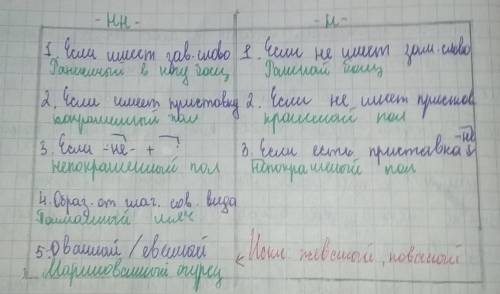 - НН -
- Н -
1. Если имеет зав. слово
Раненный в ногу боец
2. Если имеет приставку
покрашенный пол
3. Если -не- +
непокрашенный пол
4. Образ. от глаг. сов. вида
мяч
5. Ованный / еванный
Маринованный огурец
1. Если не имеет зам. слово
Раненый боец
2. Если не имеет пристав
крашеный пол
3. Если есть приставка -не-
Некрашеный пол
Искл жеваный, кованый